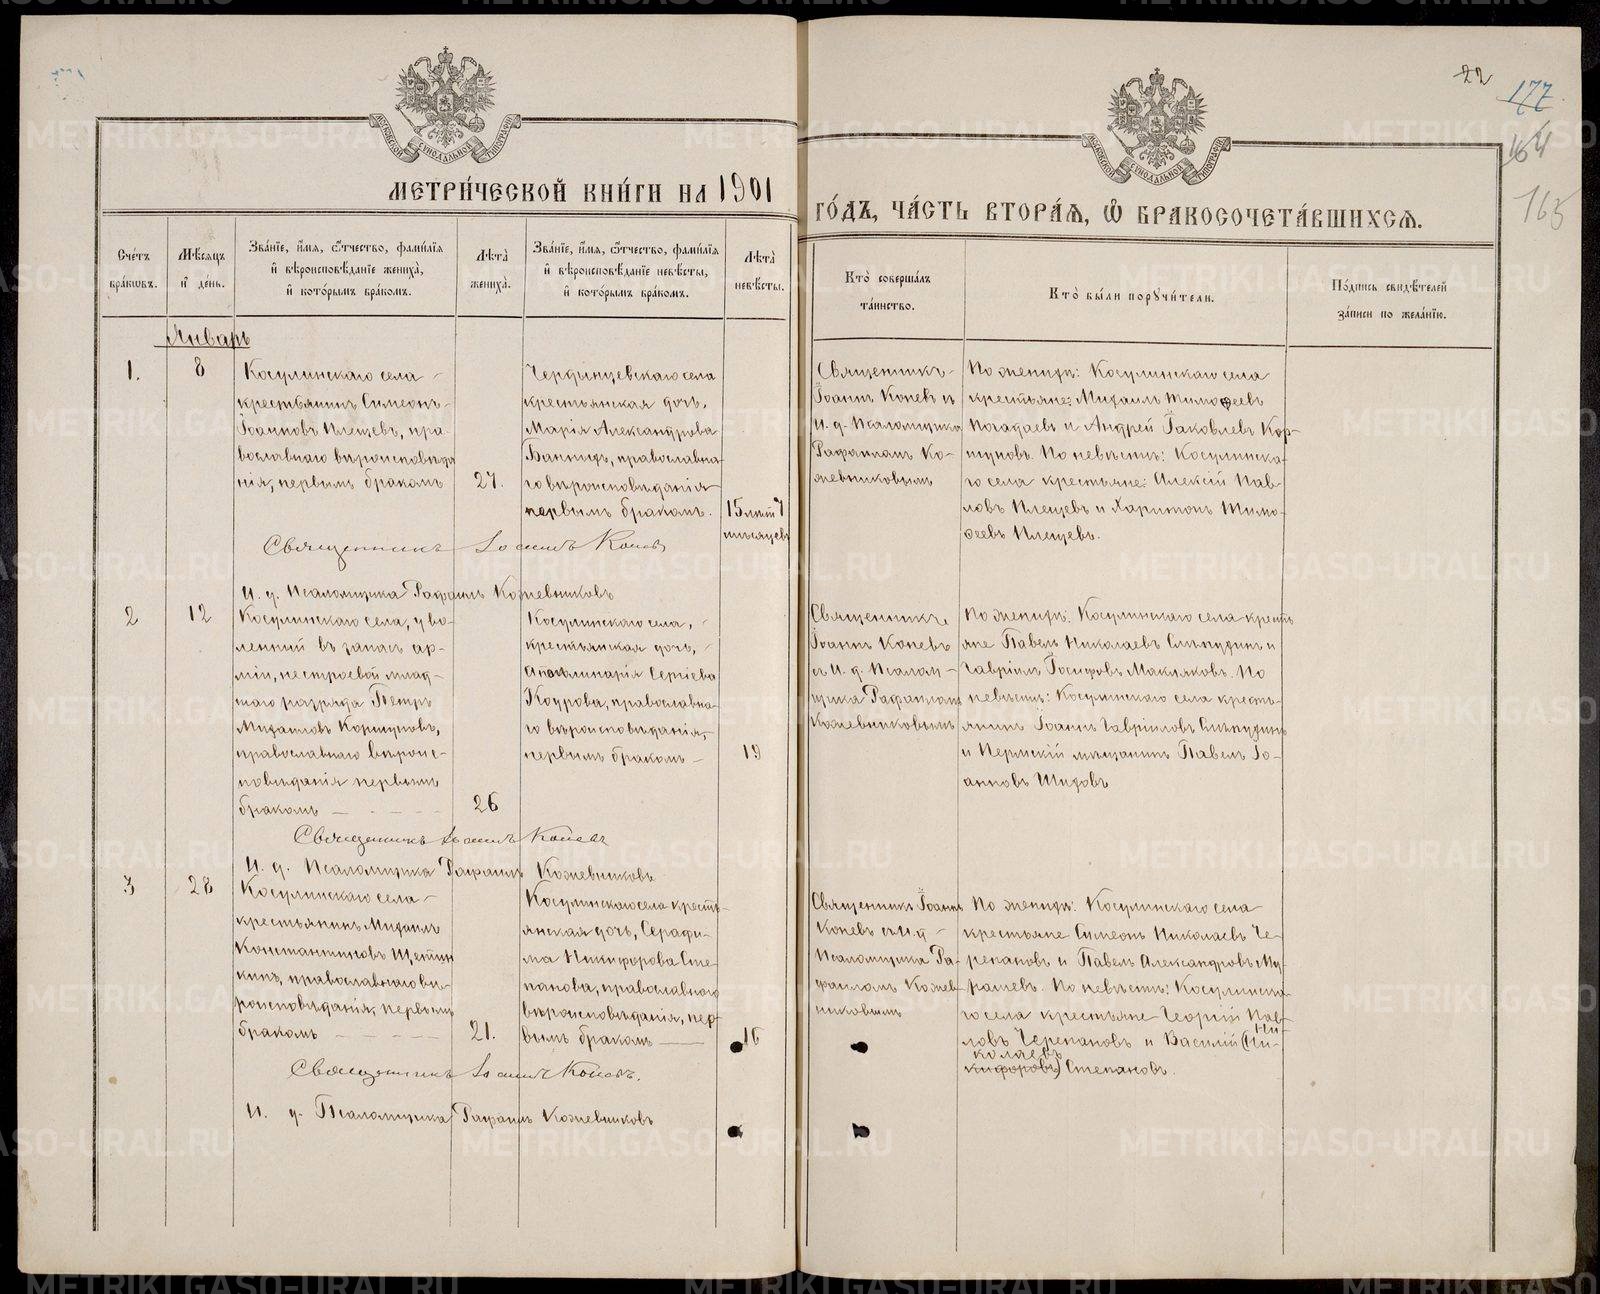 22
177
164
165
МОСКОВСКОЙ СѴНОДАЛЬНОЙ ТИПОГРАФІИ
МОСКОВСКОЙ СѴНОДАЛЬНОЙ ТИПОГРАФІИ
МЕТРИ́ЧЕСКОЙ КНИ́ГИ НА 1901
ГО́ДЪ, ЧА́СТЬ ВТОРА́Ѧ, Ѽ БРАКОСОЧЕТА́ВШИХСѦ.
Сче́тъ
бра́кωвъ.
Мѣ́сѧцъ
и҆ де́нь.
Зва́нїе, и҆́мѧ, ѻ҆́тчество, фами́лїѧ
и҆ вѣроисповѣ́данїе жениха̀,
и҆ кото́рымъ бра́комъ.
Лѣ́та
жениха̀.
Зва́нїе, и҆́мѧ, ѻ҆́тчество, фами́лїѧ
и҆ вѣроисповѣ́данїе невѣ́сты,
и҆ кото́рымъ бра́комъ.
Лѣ́та
невѣ́сты.
Кто̀ соверша́лъ
та́инство.
Кто̀ бы́ли порꙋчи́тели.
По́дпись свидѣ́телей
за́писи по жела́нїю.
Январь
1.
8
Косулинскаго села
крестьянинъ Симеонъ
Іоанновъ Плещевъ, пра-
вославнаго вѣроисповѣда
нія, первымъ бракомъ
27.
крестьянская дочь,
Марія Александрова
православна-
го вѣроисповѣданія
первымъ бракомъ.
15 лѣтъ 7
мѣсяцевъ
Священникъ
Іоаннъ Коневъ съ
И. д. Псаломщика
Рафаиломъ Ко-
жевниковымъ
По женихѣ: Косулинскаго села
крестьяне: Михаилъ Тимоѳеевъ
и Андрей Іаковлевъ Кор-
шуновъ. По невѣстѣ: Косулинска-
го села крестьяне: Алексій Пав-
ловъ Плещевъ и Харитонъ Тимо-
ѳеевъ Плещевъ.
Священникъ Іоаннъ Коневъ
И. д. Псаломщика Рафаилъ Кожевниковъ
2
12
Косулинскаго села, уво-
ленный въ запасъ ар-
міи, нестроевой млад-
шаго разряда Петръ
Михаиловъ Коршуновъ,
православнаго вѣроис-
повѣданія первымъ
бракомъ
26
Косулинскаго села,
крестьянская дочь,
Аполлинарія Сергіева
православна-
го вѣроисповѣданія,
первымъ бракомъ
19
Священникъ
Іоаннъ Коневъ
съ И. д. Псалом-
щика Рафаиломъ
Кожевниковымъ
По женихѣ: Косулинскаго села кресть
яне Павелъ Николаевъ и
Гавріилъ Іосифовъ По
невѣстѣ: Косулинскаго села кресть-
янинъ Іоаннъ Гавріиловъ
и Пермскій мѣщанинъ Павелъ Іо-
анновъ
Священникъ Іоаннъ Коневъ
И. д. Псаломщика Рафаилъ Кожевниковъ
3
28
Косулинскаго села
крестьянинъ Михаилъ
Константиновъ Щетин
кинъ, православнаго вѣ-
роисповѣданія, первымъ
бракомъ
21.
Косулинскаго села кресть-
янская дочь, Серафи-
ма Никифорова Сте-
панова, православнаго
вѣроисповѣданія, пер-
вымъ бракомъ
16
Священникъ Іоаннъ
Коневъ съ И. д.
Псаломщика Ра-
фаиломъ Кожев-
никовымъ
По женихѣ: Косулинскаго села
крестьяне Симеонъ Николаевъ Че-
репановъ и Павелъ Александровъ
По невѣстѣ: Косулинска-
го села крестьяне Георгій Пав-
ловъ Черепановъ и Василій (Ни-
Ни-
колаевъ
кифоровъ) Степановъ.
Священникъ Іоаннъ Коневъ.
И. д. Псаломщика Рафаилъ Кожевниковъ
METRIKI.GASO-URAL.RU